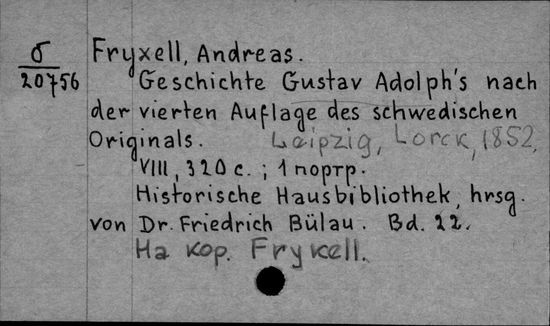 б
20756
Fryxell, Andreas.
Geschichte Gustav Adolph's nach
der vierten Auflage des schwedischen
Originals. Leipzig, Lorck, 1852.
VIII, 320 с. ; 1 портр.
Historische Hausbibliothek, hrsg.
von Dr. Friedrich Bülau. Bd. 22.
На кор. Frykell.